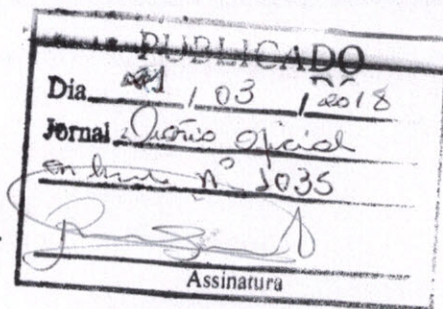 PUBLICADO
Dia / 03 / 2018
Jornal Diário Oficial
on line nº 1035
Assinatura